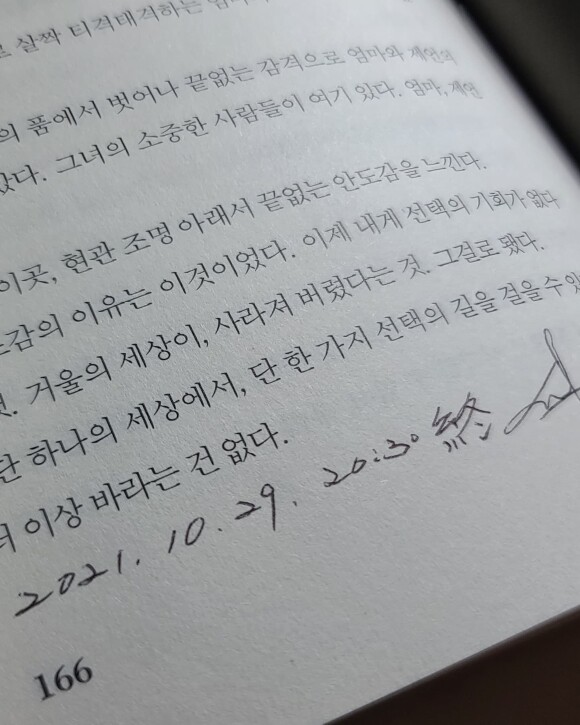 살짝 티격태격하는
의 품에서 벗어나 끝없는 감격으로 엄마와 재연의
았다. 그녀의 소중한 사람들이 여기 있다. 엄마, 재연
이곳, 현관 조명 아래서 끝없는 안도감을 느낀다.
도감의 이유는 이것이었다. 이제 내게 선택의 기회가 없다
것. 거울의 세상이, 사라져 버렸다는 것. 그걸로 됐다.
단 하나의 세상에서, 단 한 가지 선택의 길을 걸을 수 있
더 이상 바라는 건 없다.
2021. 10. 29. 20:30 終
166